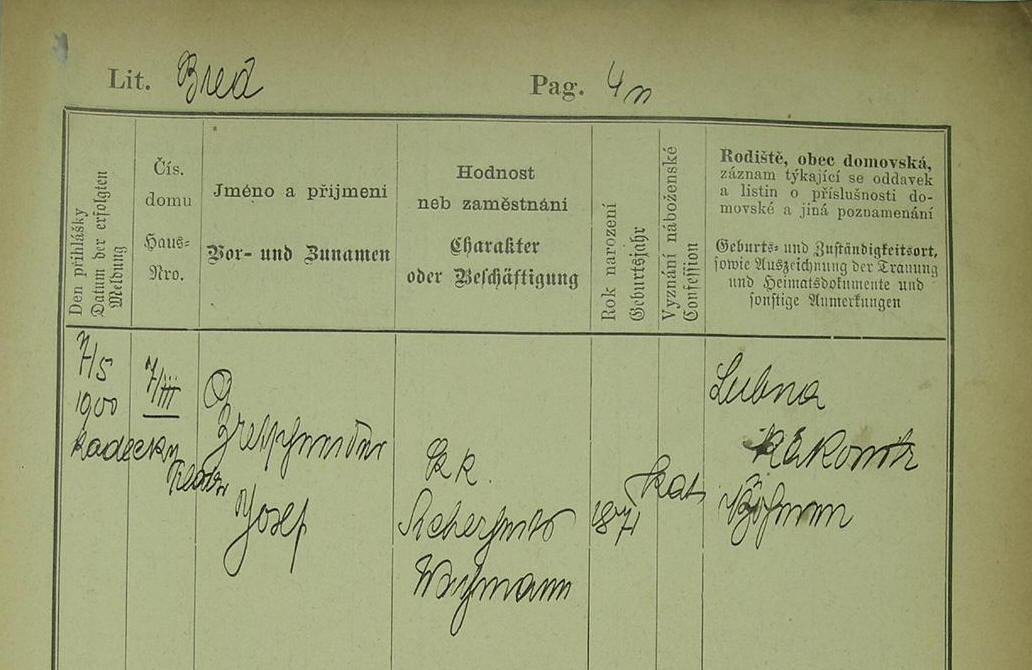 Lit. Bred
Pag. 4
Den přihlášky
Datum der erfolgten
Meldung
Čís.
domu
Haus-
Nro.
Jméno a příjmení
Vor- und Zunamen
Hodnost
neb zaměstnání
Charakter
oder Beschäftigung
Rok narození
Geburtsjahr
Vyznání náboženské
Confession
Rodiště, obec domovská,
záznam týkající se oddavek
a listin o příslušnosti do-
movské a jiná poznamenání
Geburts- und Zuständigkeitsort,
sowie Auszeichnung der Trauung
und Heimatsdokumente und
sonstige Anmerkungen
7/5
1900
Radecky
7/III
Josef
KK.
Sicherheits
Wachmann
1871
kat
Lubna
Rakonitz
Böhmen